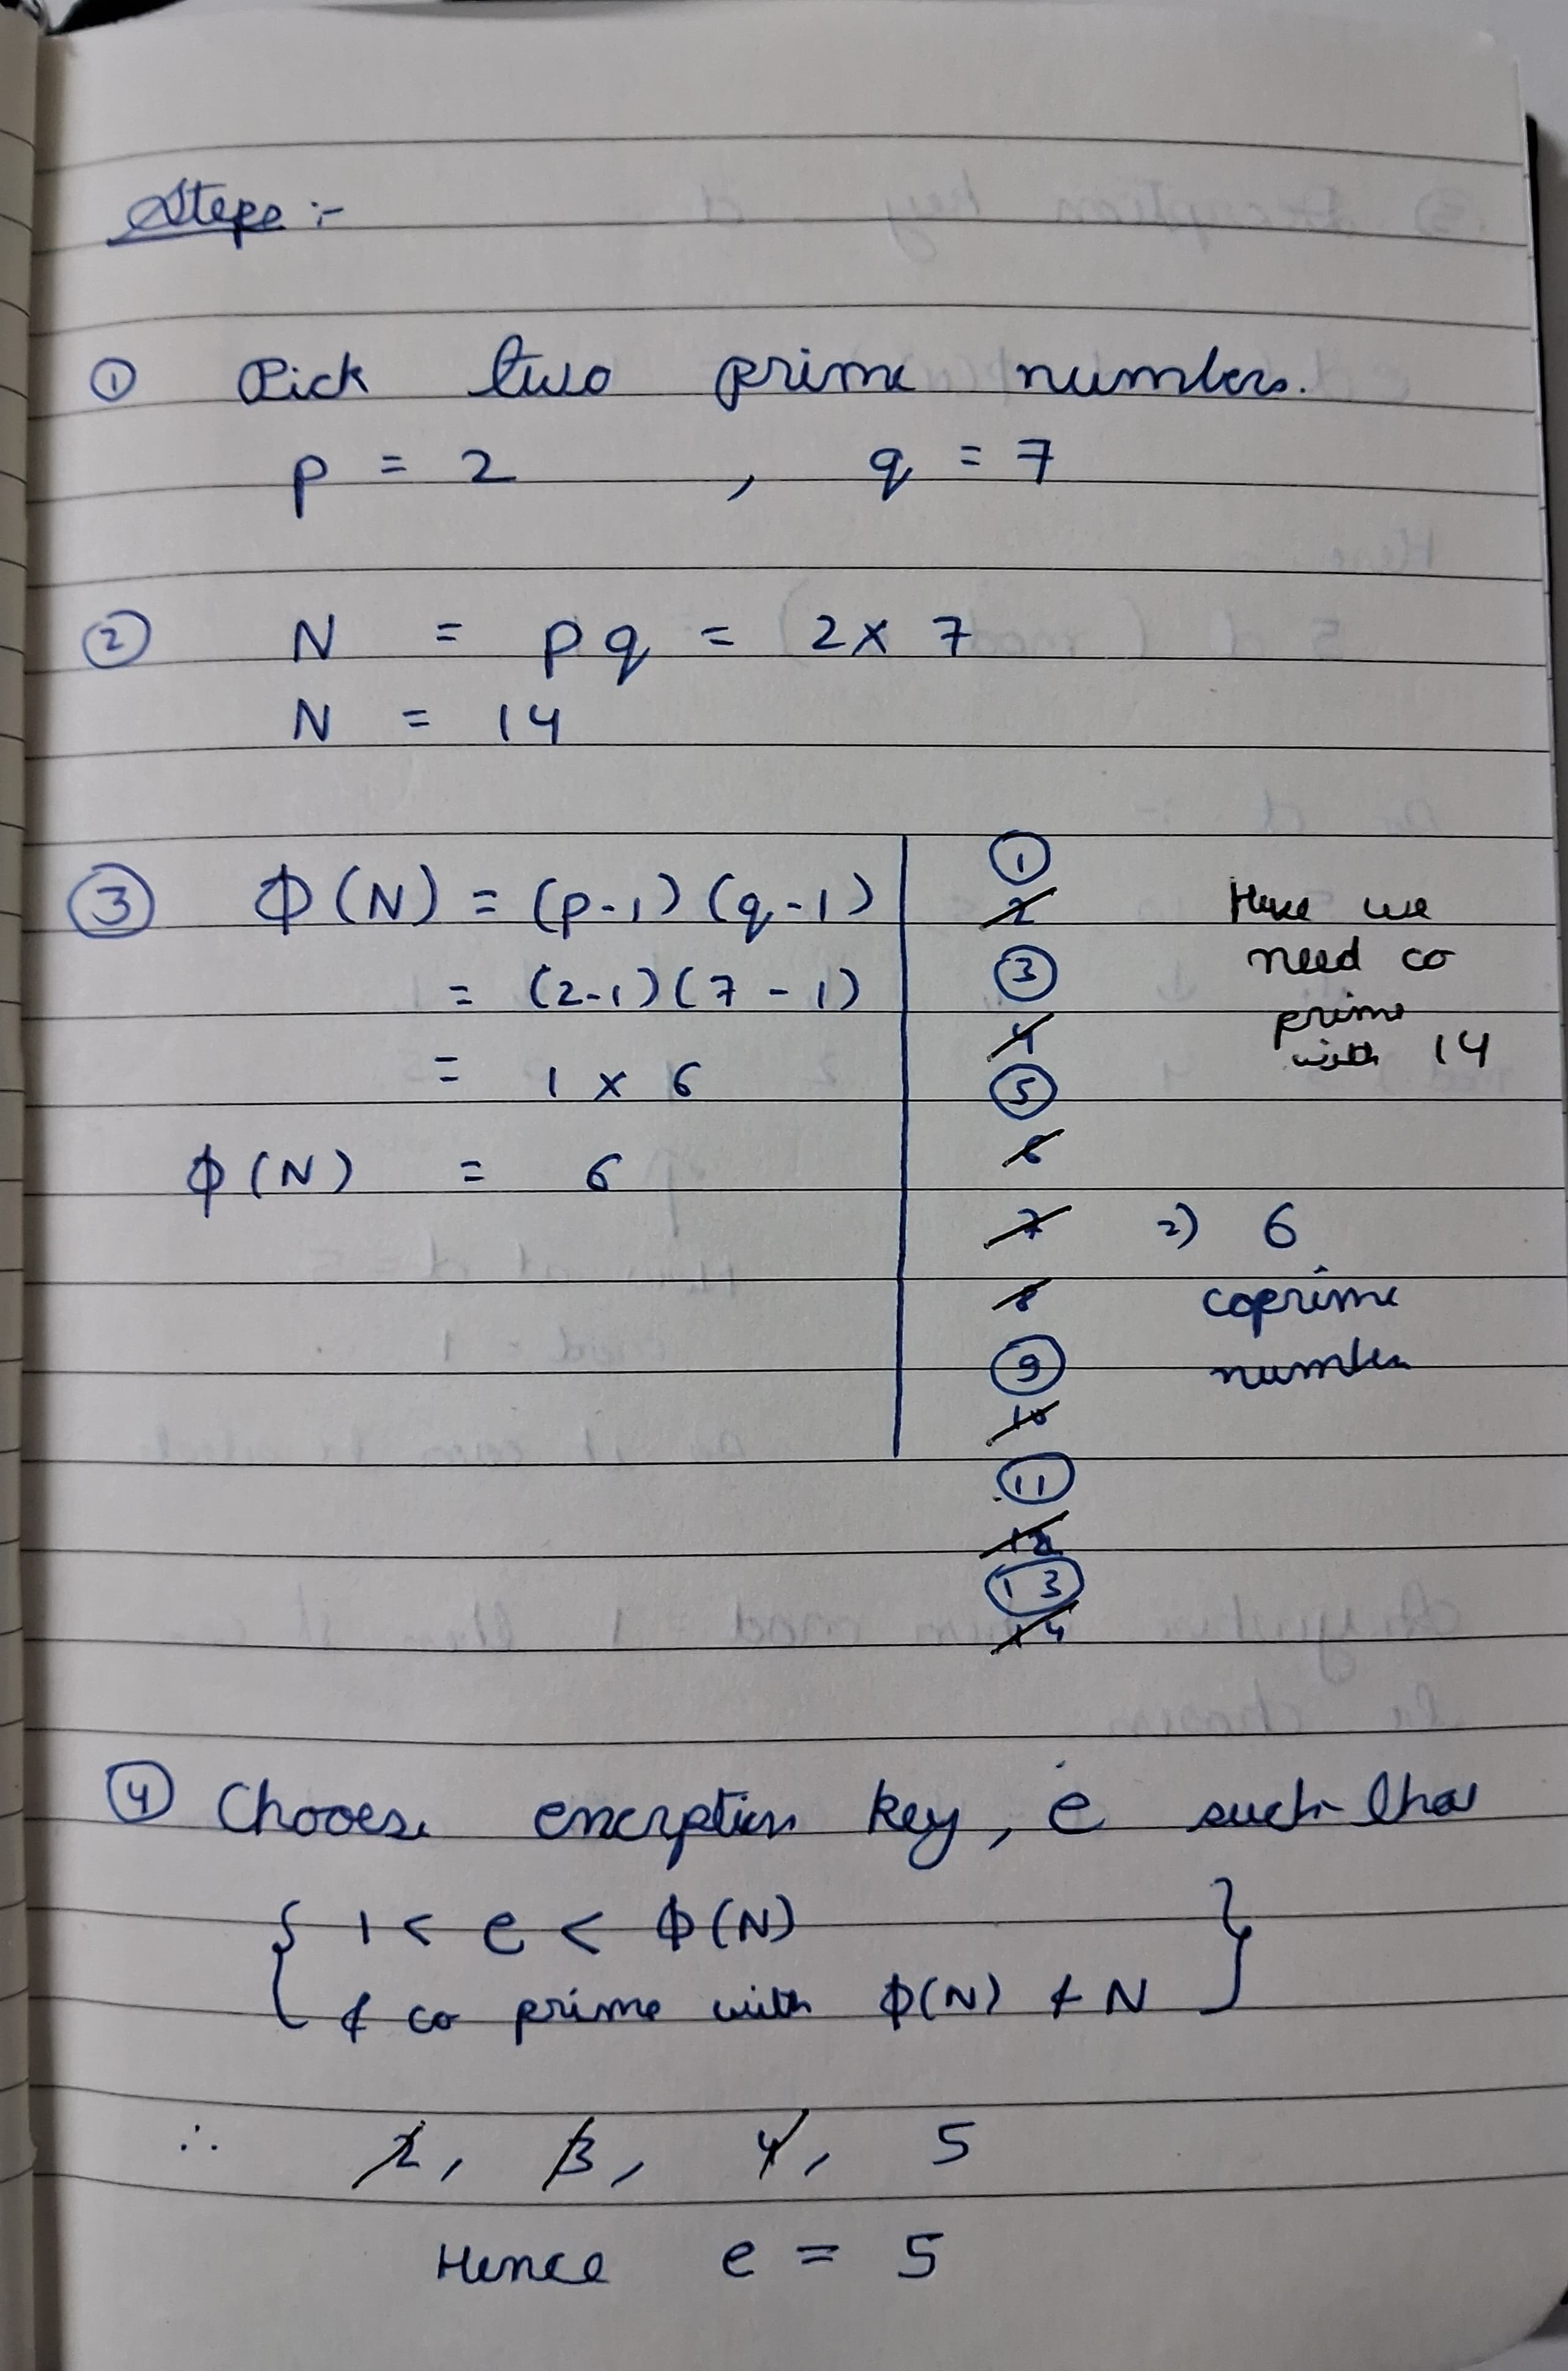 Steps :-
① Pick two prime numbers.
p = 2 , q = 7
② N = pq = 2 x 7
N = 14
③ Φ(N) = (p-1) (q-1)
= (2-1) (7-1)
= 1 x 6
Φ(N) = 6
①
2
③
4
⑤
6
7
8
⑨
10
⑪
12
⑬
14
Here we
need co
prime
with 14
=) 6
coprime
number
④ Choose encrption key, e such that
{ 1 < e < Φ(N)
& co prime with Φ(N) & N }
∴ 2, 3, 4, 5
Hence e = 5